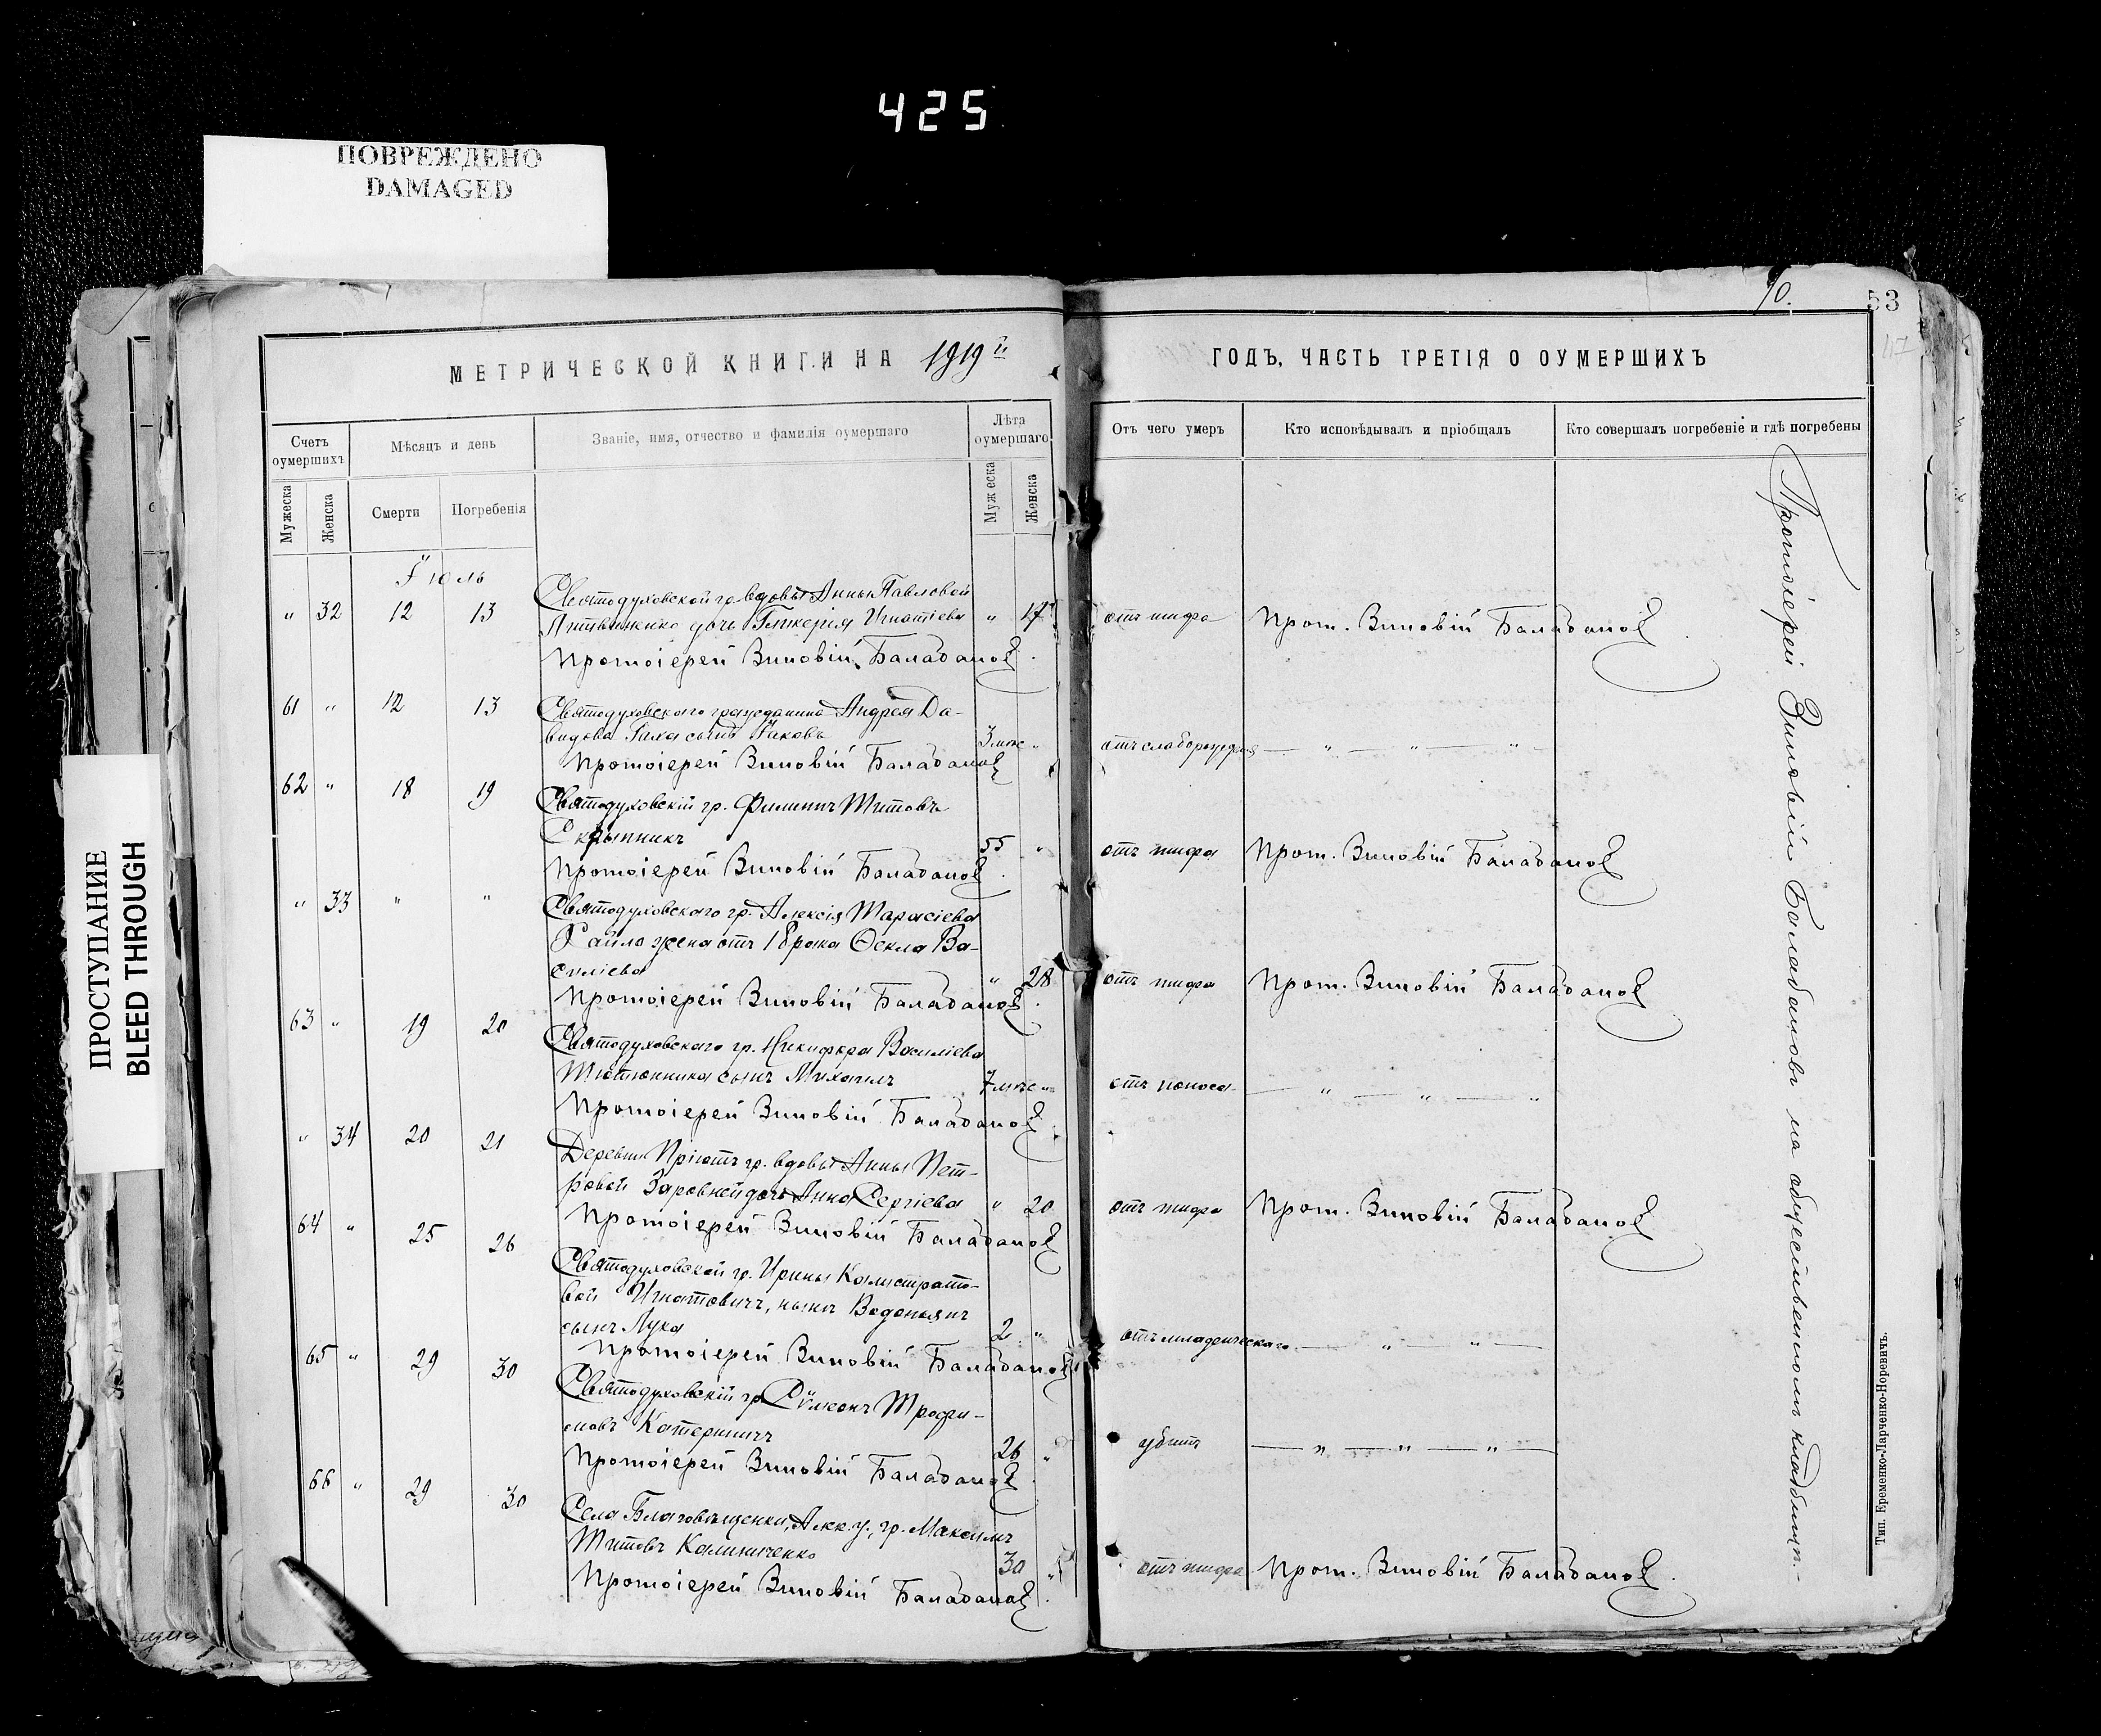 425
ПОВРЕЖДЕНО
DAMAGED
ПРОСТУПАНИЕ
BLEED THROUGH
МЕТРИЧЕСКОЙ КНИГИ НА 1919й
Счетъ оумершихъ
Мѣсяцъ и день
Званіе, имя, отчество и фамилія оумершаго
Лѣта оумершаго
Мужеска
Женска
Смерти
Погребенія
Мужеска
Женска
Іюль
" 32 12 13 Святодуховской гр. вдовы Анны Павловой
Литвиненко дочь Гликерія Игнатіева " 17
Протоіерей Зиновій Балабановъ.
61 " 12 13 Святодуховского гражданина Андрея Да-
видова Гиха сынъ Яковъ 3 мѣс "
Протоіерей Зиновій Балабановъ
62 " 18 19 Святодуховскій гр. Филиппъ Титовъ
Скрыпникъ 55 "
Протоіерей Зиновій Балабановъ.
" 33 " " Святодуховского гр. Алексія Тарасіева
жена отъ 1 брака Ѳекла Ва-
силіева " 28
Протоіерей Зиновій Балабановъ.
63 " 19 20 Святодуховского гр. Никифора Василіева
Тютюнника сынъ Михаилъ 7 мѣс "
Протоіерей Зиновій Балабановъ.
" 34 20 21 Деревни Пріютъ гр. вдовы Анны Пет-
ровой Заровней дочь Анна Сергіева " 20
Протоіерей Зиновій Балабановъ
64 " 25 26 Святодуховской гр. Ирины Калистрато-
вой Игнатовичъ, нынѣ Водопьянъ
сынъ Лука 2 "
Протоіерей Зиновій Балабановъ
65 " 29 30 Святодуховскій гр. Сѵмеонъ Трофи-
мовъ Катериничъ 26 "
Протоіерей Зиновій Балабановъ.
66 " 29 30 Села Благовѣщенки, Алек. у., гр. Максимъ
Титовъ Калиниченко 30 "
Протоіерей Зиновій Балабановъ.
10.
53
ГОДЪ, ЧАСТЬ ТРЕТІЯ О ОУМЕРШИХЪ
Отъ чего умеръ
Кто исповѣдывалъ и пріобщалъ
Кто совершалъ погребеніе и гдѣ погребены
отъ тифа Прот. Зиновій Балабановъ
отъ слаборожденія — " — " — " —
отъ тифа Прот. Зиновій Балабановъ
отъ тифа Прот. Зиновій Балабановъ
отъ поноса — " — " — "
отъ тифа Прот. Зиновій Балабановъ
отъ младенческаго — " — " —
убитъ — " — " — " —
отъ тифа Прот. Зиновій Балабановъ.
Протоіерей Зиновій Балабановъ на общественномъ кладбищѣ.
Тип. Еременко-Ларченко-Норевичъ.